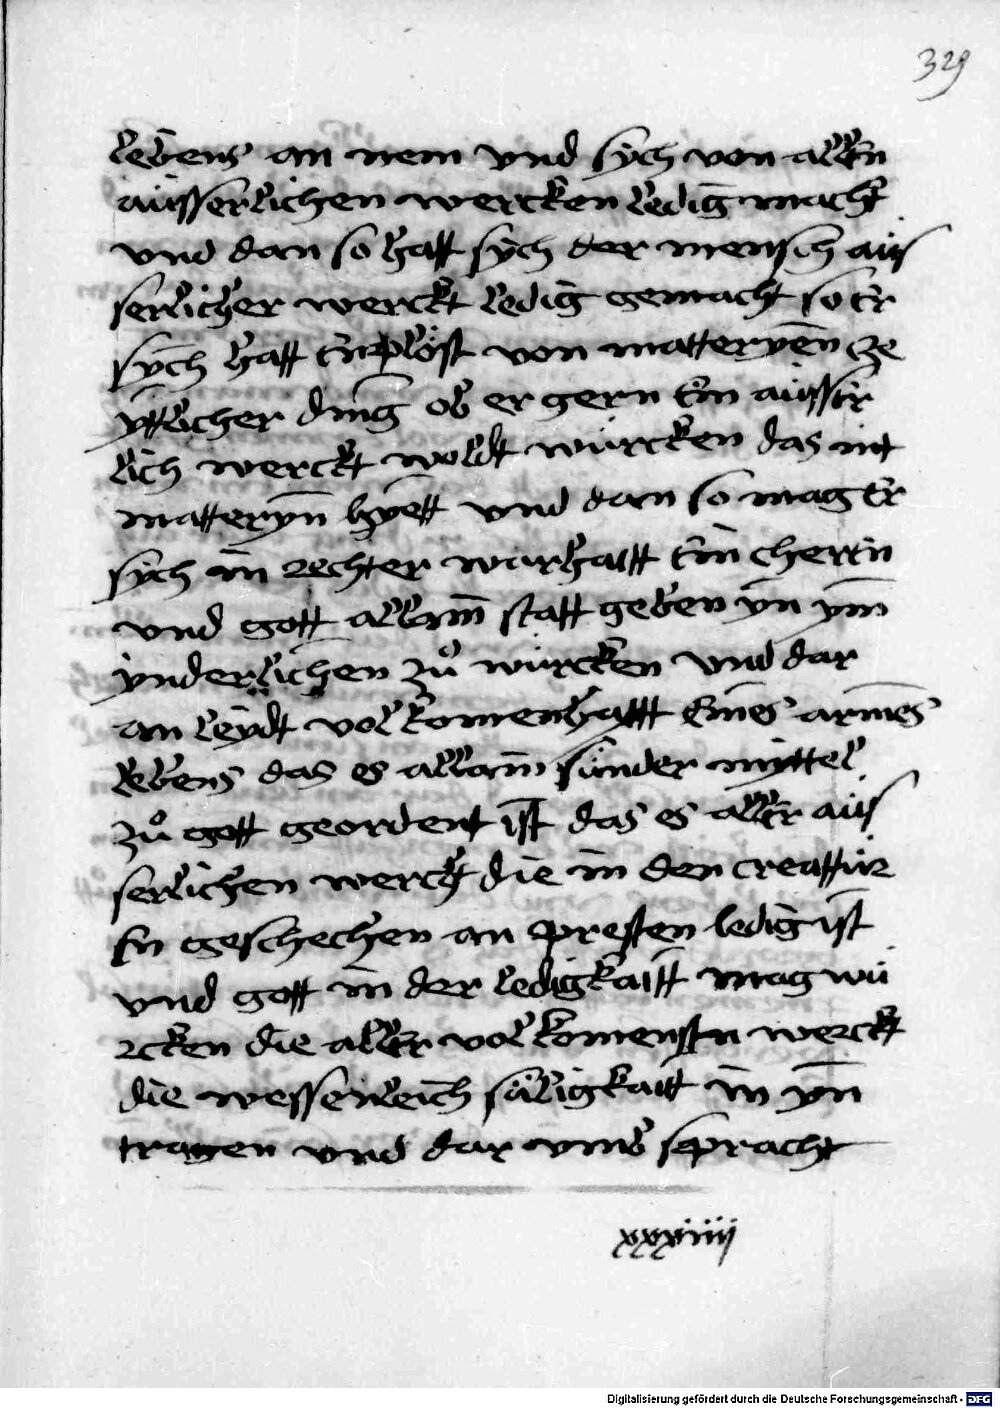 329
lebens an nem vnd sÿch von allen
aüsserlichen wercken ledig macht
vnd dan so hatt sÿch der mensch aüs
serlicher werckt ledig gemacht so er
sÿch hatt enplöst von matterÿen ze
ÿttlicher ding ob er gern ein aüsser
lich werckt woldt würcken das nit
matterÿn hÿett vnd dan so mag er
sÿch in rechter warhaitt ein cherrn
vnd gott allain statt geben ÿn ÿm
ÿnderlichen zů würcken vnd dar
an leÿdt volkomenhaÿtt eines armes
lebens das es allain sünder mÿttel
zů gott geordent ist das es aller aüs
serlichen werch die in den creattür
en geschechen an presten ledig ist
vnd gott in der ledigkaitt mag wü
rcken die aller volkomensten werckt
die wessenleich säligkaitt in ÿn
tragen vnd dar vmb spracht
xxxiiij
Digitalisierung gefördert durch die Deutsche Forschungsgemeinschaft - DFG